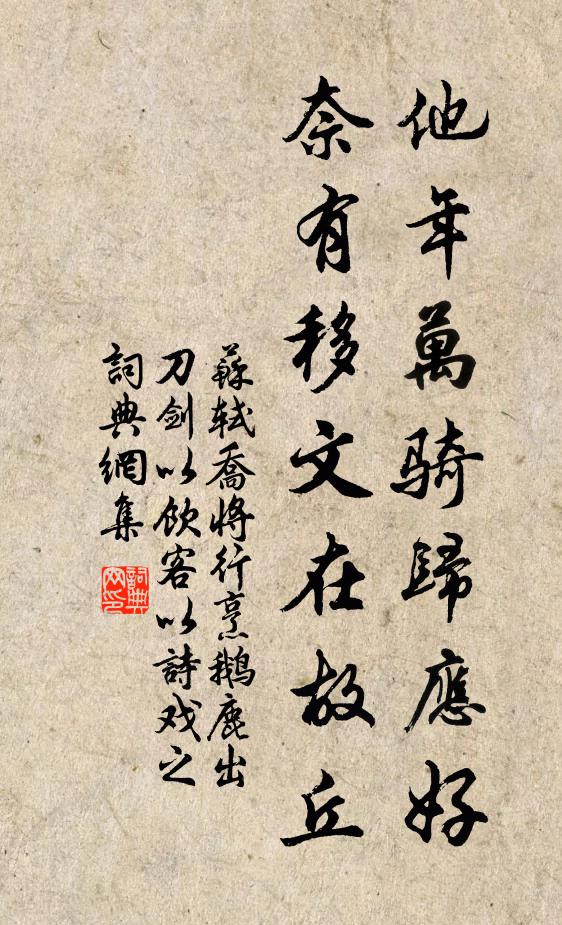 他年萬骑歸應好
奈有移文在故丘
蘇轼喬將行烹鹅鹿出
刀劍以飲客以詩戏之
詞典網集
詞典
网印